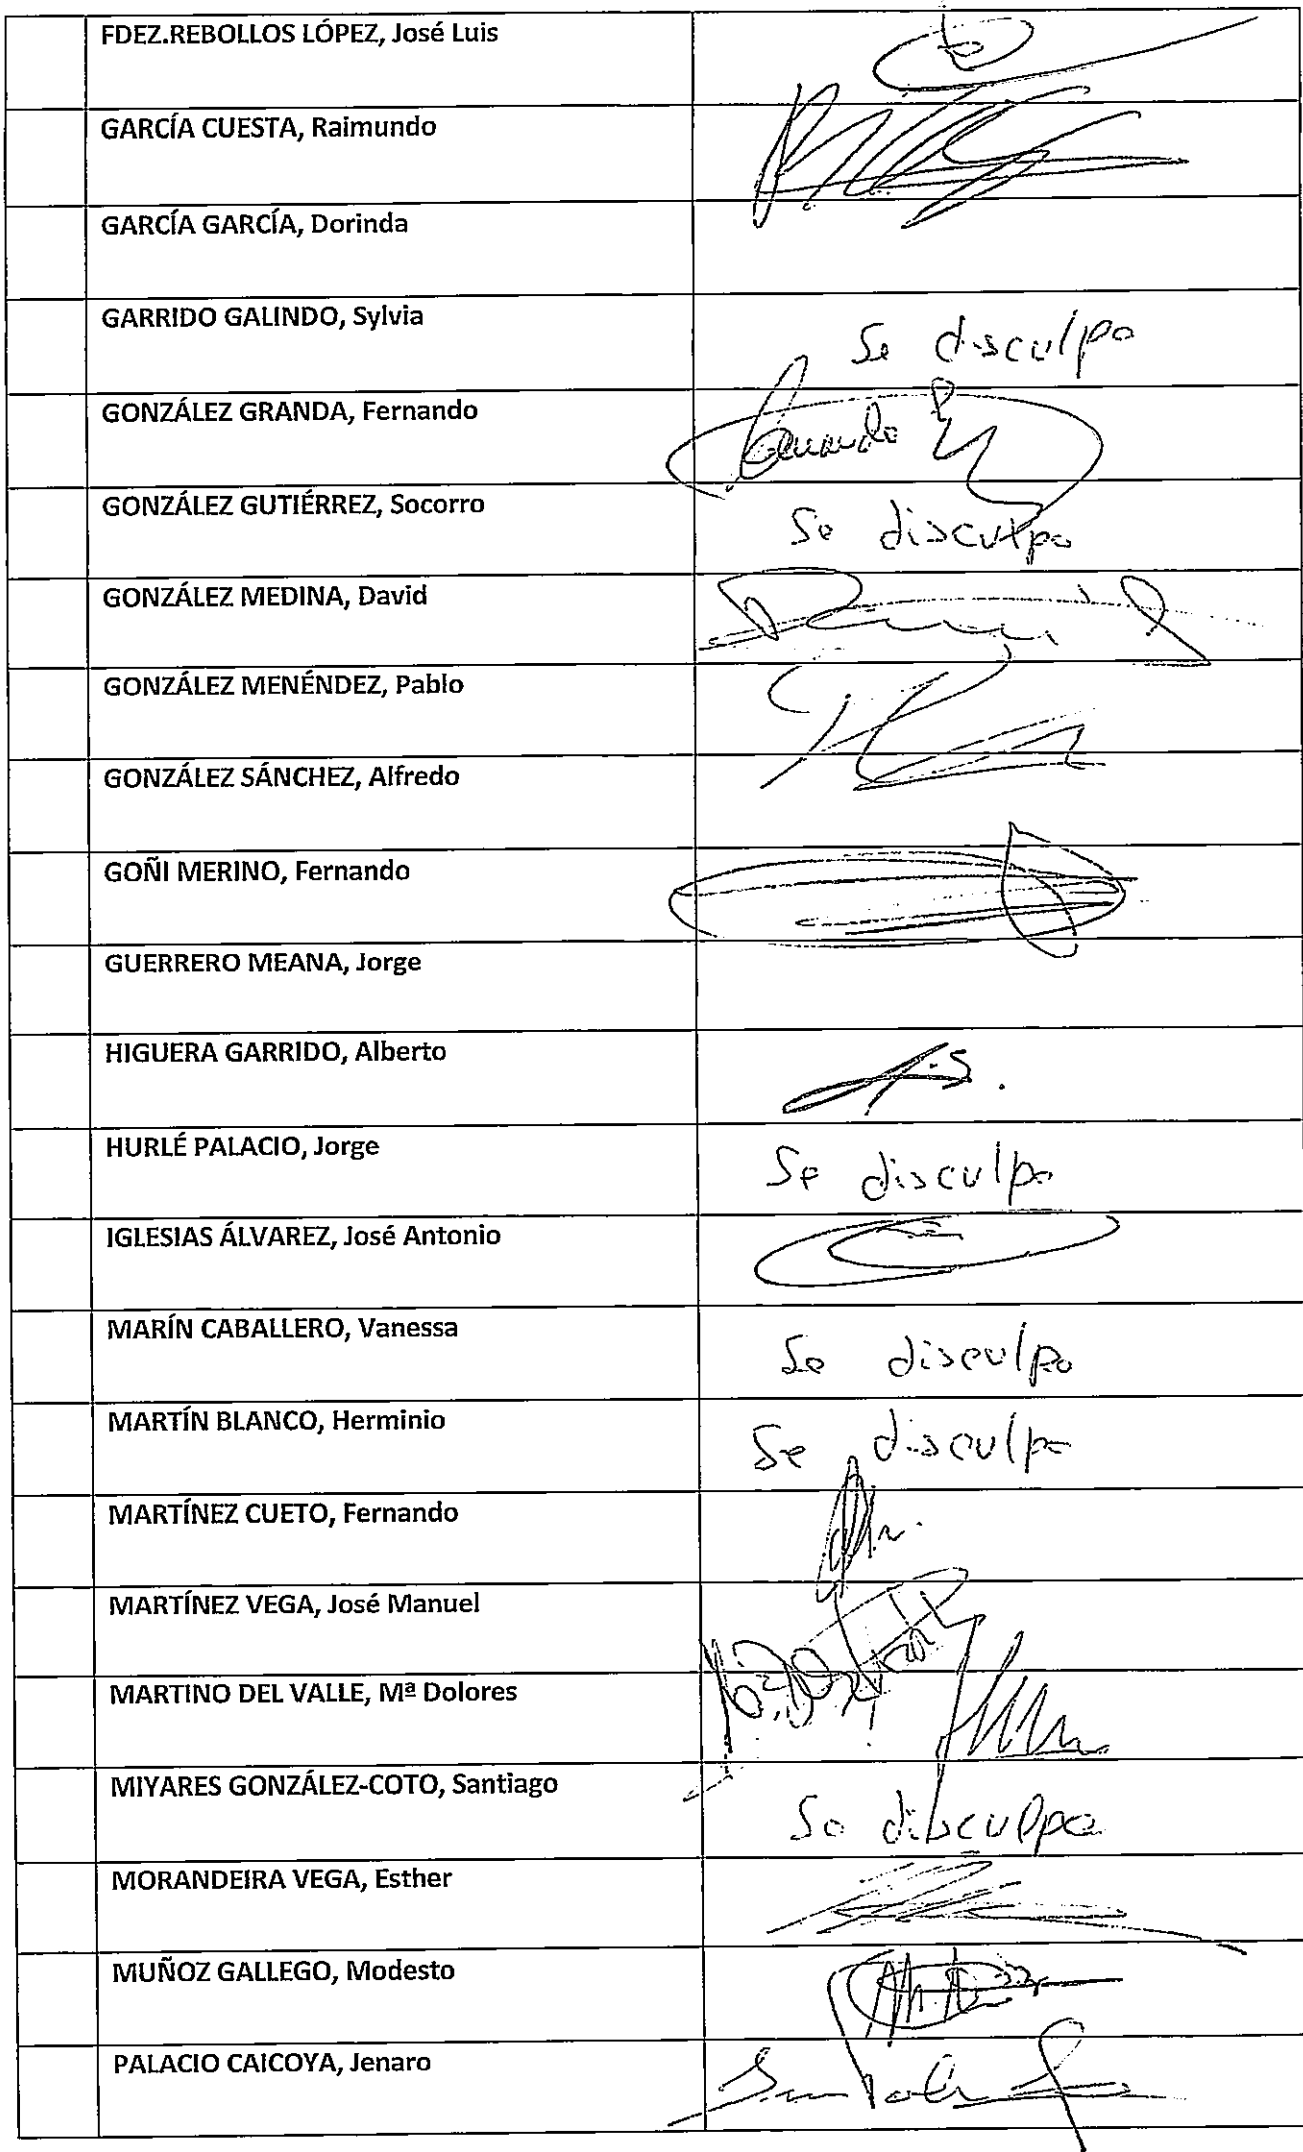 FDEZ.REBOLLOS LÓPEZ, José Luis
GARCÍA CUESTA, Raimundo
GARCÍA GARCÍA, Dorinda
GARRIDO GALINDO, Sylvia
Se disculpa
GONZÁLEZ GRANDA, Fernando
GONZÁLEZ GUTIÉRREZ, Socorro
Se disculpa
GONZÁLEZ MEDINA, David
GONZÁLEZ MENÉNDEZ, Pablo
GONZÁLEZ SÁNCHEZ, Alfredo
GOÑI MERINO, Fernando
GUERRERO MEANA, Jorge
HIGUERA GARRIDO, Alberto
HURLÉ PALACIO, Jorge
Se disculpa
IGLESIAS ÁLVAREZ, José Antonio
MARÍN CABALLERO, Vanessa
Se disculpa
MARTÍN BLANCO, Herminio
Se disculpa
MARTÍNEZ CUETO, Fernando
MARTÍNEZ VEGA, José Manuel
MARTINO DEL VALLE, Mª Dolores
MIYARES GONZÁLEZ-COTO, Santiago
Se disculpa
MORANDEIRA VEGA, Esther
MUÑOZ GALLEGO, Modesto
PALACIO CAICOYA, Jenaro